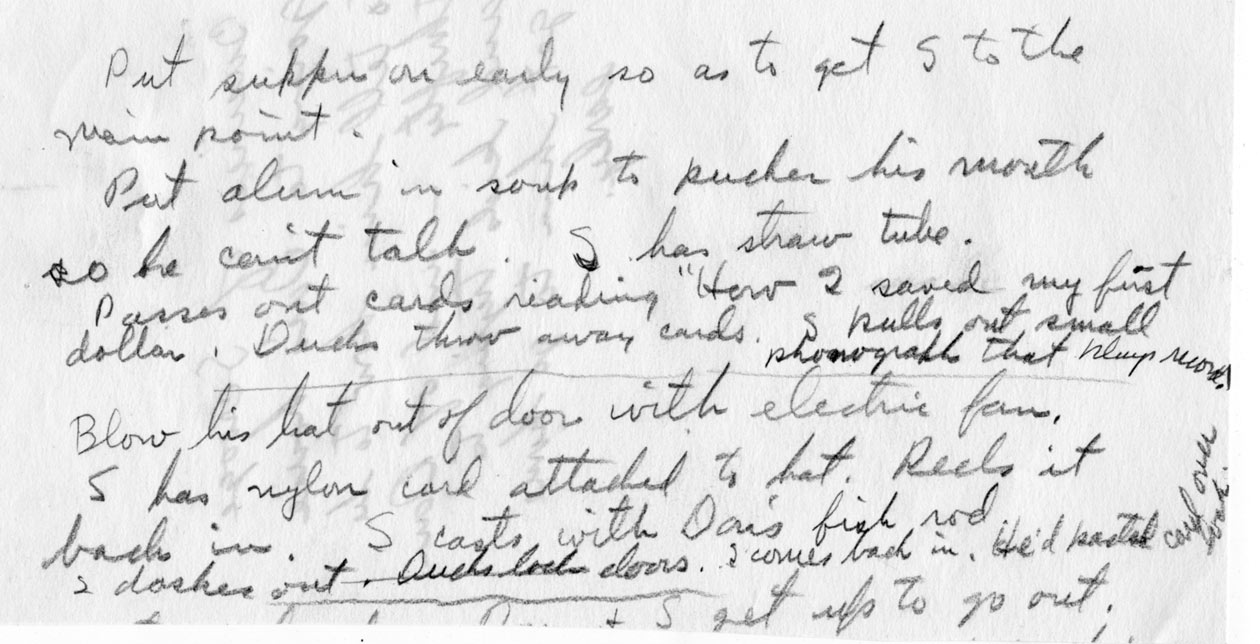 Put supper on early so as to get S to the
main point.
Put alum in soup to pucker his mouth
so he can't talk. S has straw tube.
Passes out cards reading "How I saved my first
dollar. Ducks throw away cards. S pulls out small
phonograph that plays record.
Blow his hat out of door with electric fan.
S has nylon cord attached to hat. Reels it
back in. S casts with Don's fish rod
S dashes out. Ducks lock doors. S comes back in. He'd pasted card over
lock.
S get up to go out.